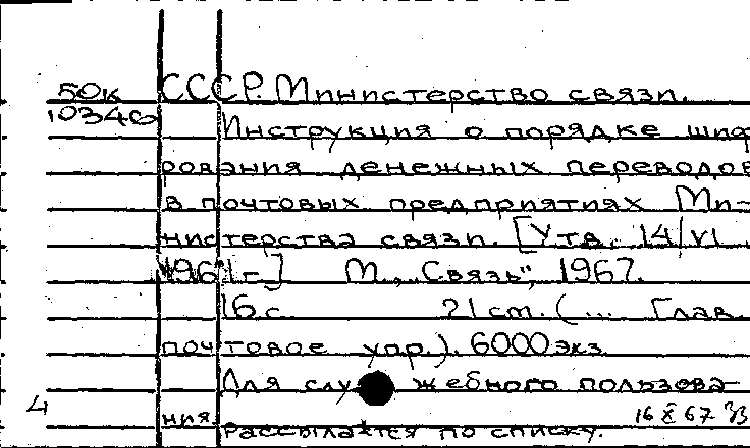 50к СССР. Министерство связи.
10346 Инструкция о порядке шиф
рования денежных переводов
в почтовых предприятиях Ми-
нистерства связи. [Утв. 14/VI
М., "Связь", 1967.
16 с. 21 см. (... Глав.
почтовое упр.). 6000 экз.
Для служебного пользова-
ния. Рассылается по списку.
4 16 X 67